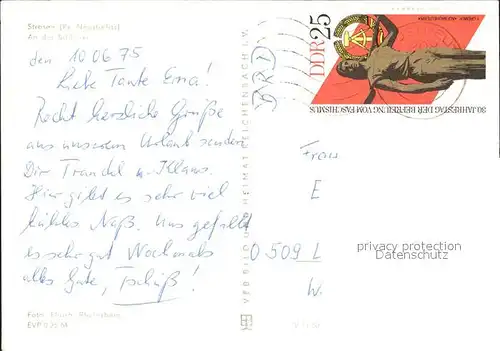 Stensen (Kr. Neuruppin)
An der Badestelle
den 10.06.75
Liebe Tante Erna!
Recht herzliche Grüße
aus unserem Urlaub senden
Dir Traudel u. Klaus.
Hier gibt es sehr viel
kühles Naß. Uns gefällt
es sehr gut. Nochmals
alles Gute, Tschüß!
Foto: Rheinsberg
EVP 0,20 M
VEB BILD UND HEIMAT REICHENBACH I. V.
BRD
DDR 25
30. JAHRESTAG DER BEFREIUNG VOM FASCHISMUS
Frau
E
0509 L
W.
privacy protection
Datenschutz